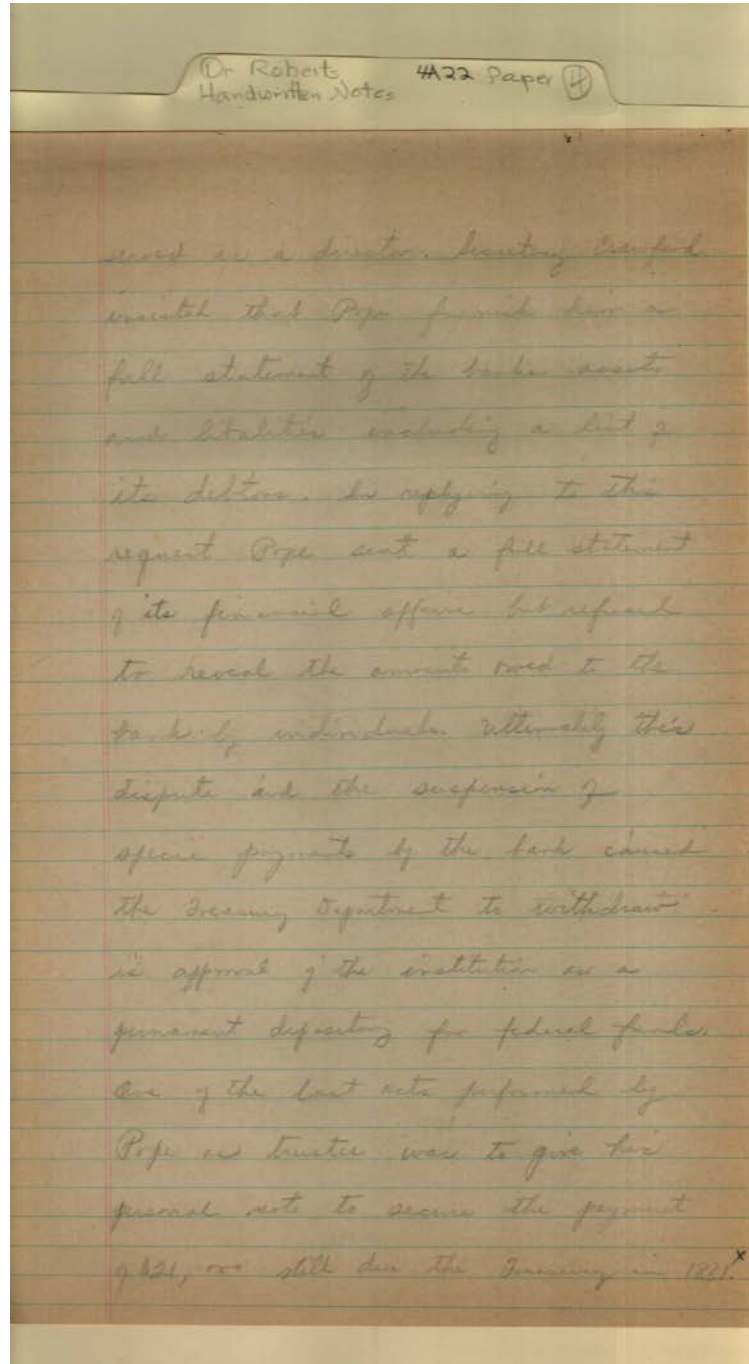 Dr Roberts 4A22 Paper 4
Handwritten Notes
served as a director. Secretary Crawford
insisted that Pope furnish him a
full statement of the banks assets
and liabilities including a list of
its debtors. In replying to this
request Pope sent a full statement
of its financial affairs but refused
to reveal the amounts owed to the
bank by individuals. Ultimately this
dispute and the suspension of
specie payments by the bank caused
the Treasury Department to withdraw
is approval of the institution as a
permanent depository for federal funds.
One of the last acts performed by
Pope as trustee was to give his
personal note to secure the payment
still due the Treasury in 1821. x